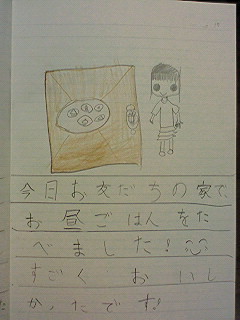 今日お友だちの家で、
お昼ごはんをた
べました!
すごく おいし
かったです!